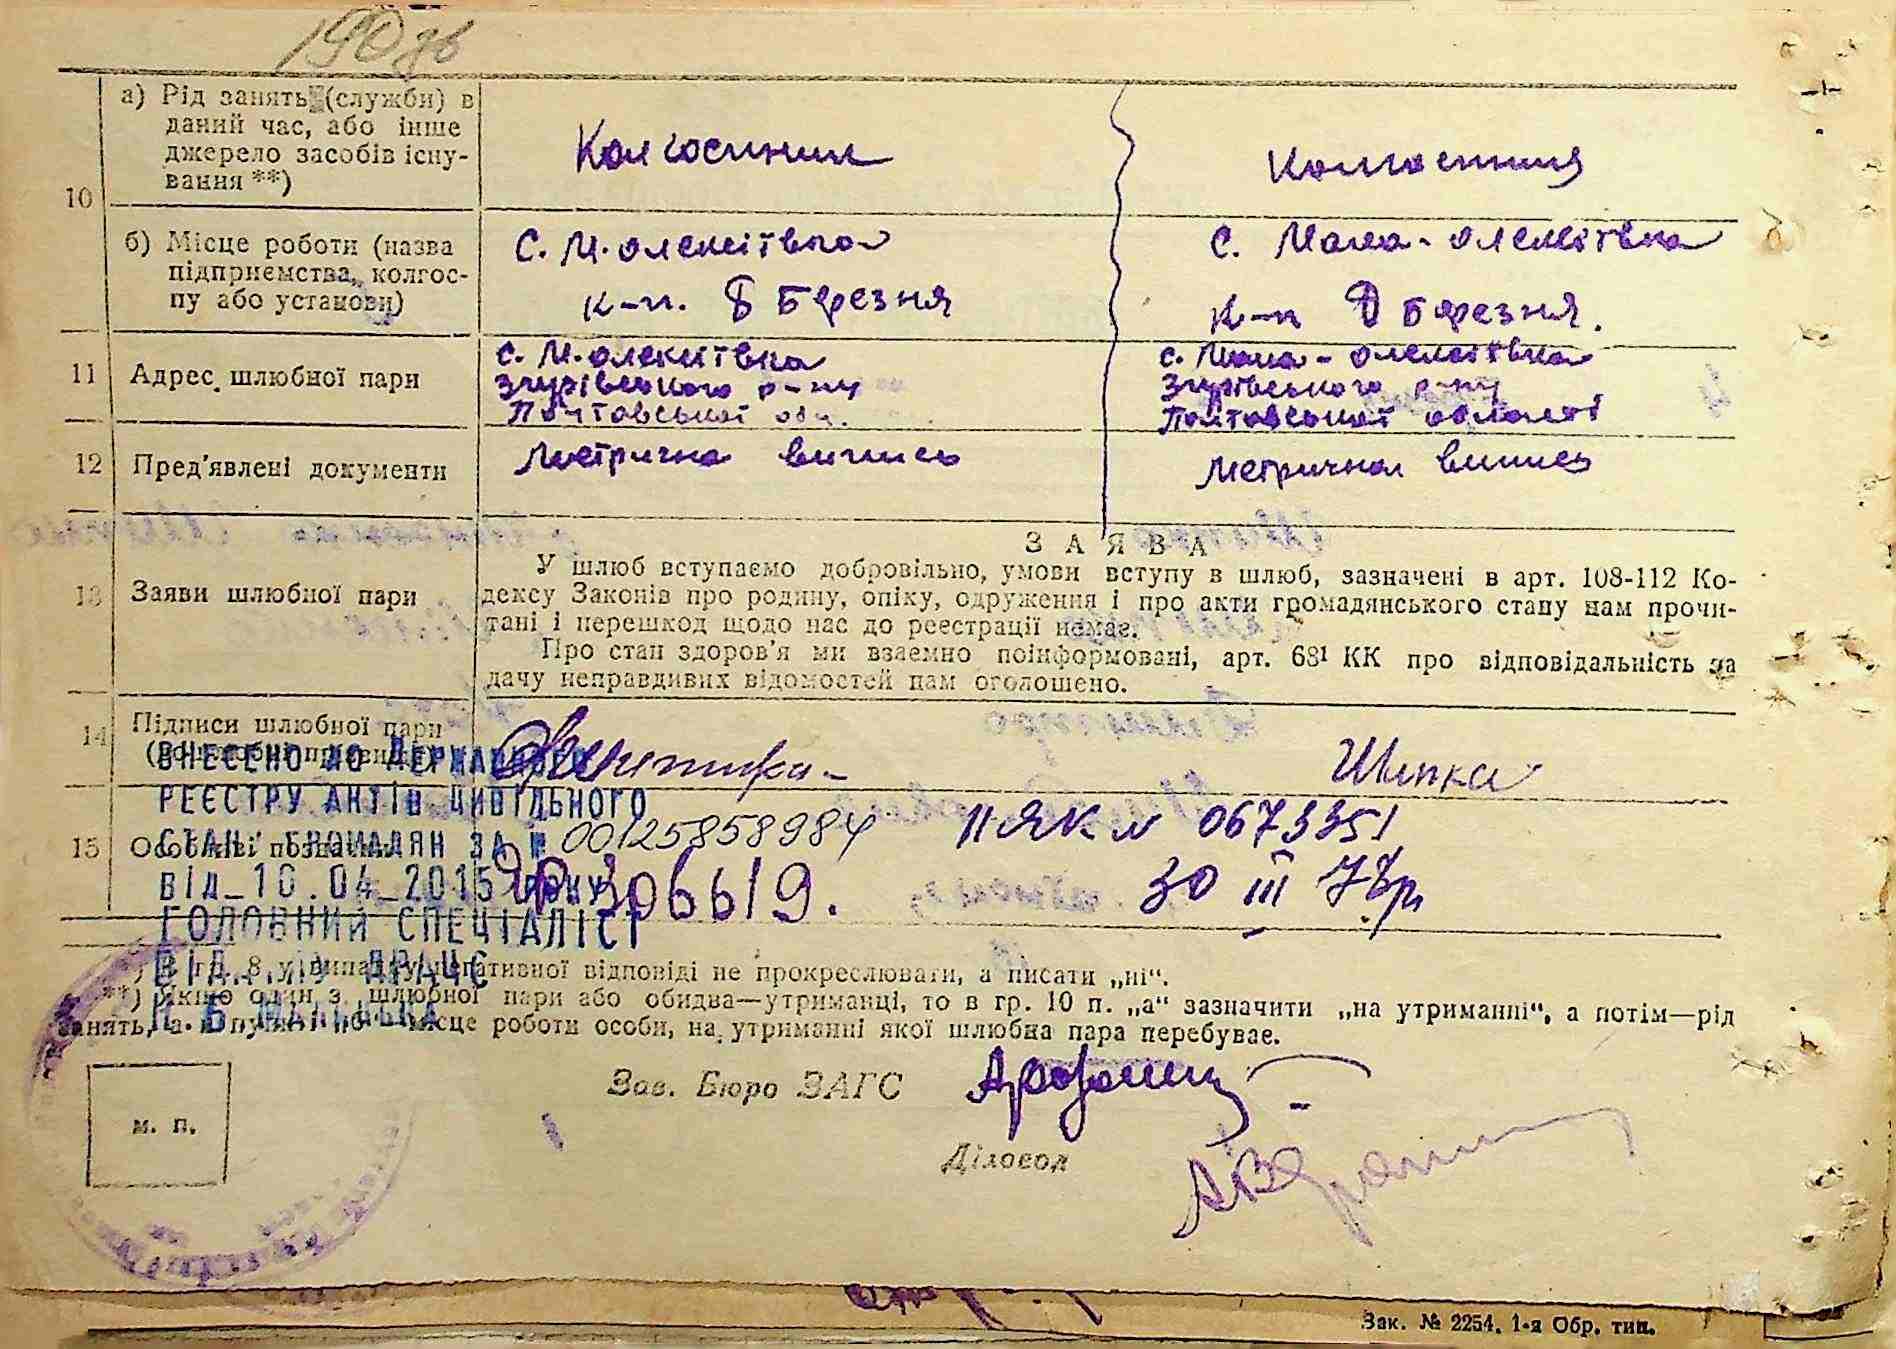 190 зв
10
а) Рід занять (службы) в
даний час, або інше
джерело засобів існу-
вання **)
Колгоспник
Колгоспниця
б) Місце роботи (назва
підприємства, колгос-
пу або установи)
С. М. олексіївка
к-п. 8 Березня
С. Мала-олексіївка
к-п 8 Березня.
11
Адрес шлюбної пари
с. М. олексіївка
Згурівського р-ну
Полтавської обл.
с. Мала-олексіївка
Згурівського р-ну
Полтавської області
12
Пред'явлені документи
Метрична випись
Метрична випись
13
Заяви шлюбної пари
ЗАЯВА
У шлюб вступаємо добровільно, умови вступу в шлюб, зазначені в арт. 108-112 Ко-
дексу Законів про родину, опіку, одруження і про акти громадянського стану нам прочи-
тані і перешкод щодо нас до реєстрації немає.
Про стан здоров'я ми взаємно поінформовані, арт. 68¹ КК про відповідальність за
дачу неправдивих відомостей нам оголошено.
14
Підписи шлюбної пари
Шипка
ВНЕСЕНО ДО ДЕРЖАВНОГО
РЕЄСТРУ АКТІВ ЦИВІЛЬНОГО
СТАНУ ГРОМАДЯН ЗА № 00125858984
ВІД 10.04.2015 РОКУ
ГОЛОВНИЙ СПЕЦІАЛІСТ
ВІДДІЛУ ДРАЦС
15
Особливі позначки
II ЯК № 0673351
306619.
30 III 73р
*) В гр. 8 у випадку негативної відповіді не прокреслювати, а писати „ні“.
**) Якщо один з шлюбної пари або обидва—утриманці, то в гр. 10 п. „а“ зазначити „на утриманні“, а потім—рід
занять, а в пункті „б“ місце роботи особи, на утриманні якої шлюбна пара перебуває.
Зав. Бюро ЗАГС
м. п.
Діловод
Зак. № 2254. 1-а Обр. тип.